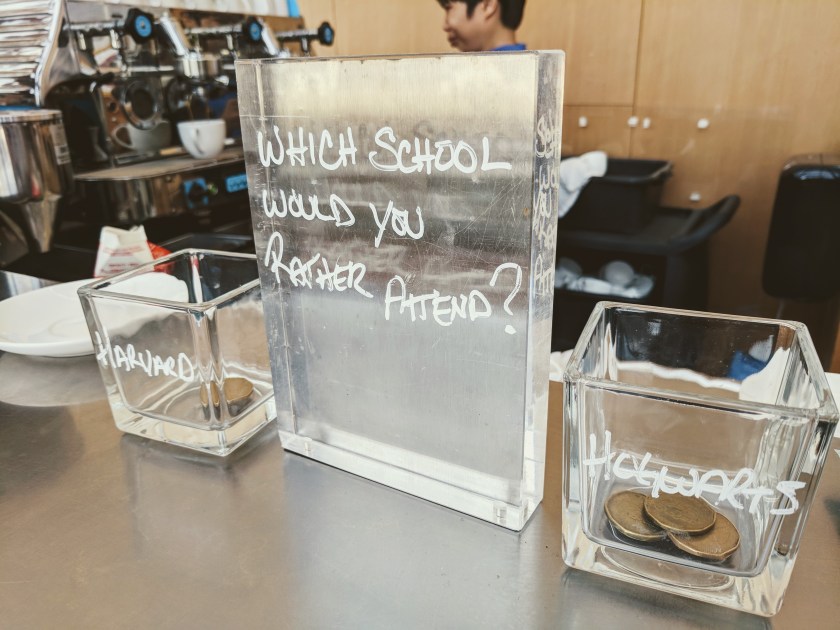 WHICH SCHOOL
WOULD YOU
RATHER ATTEND?
HARVARD
HOGWARTS